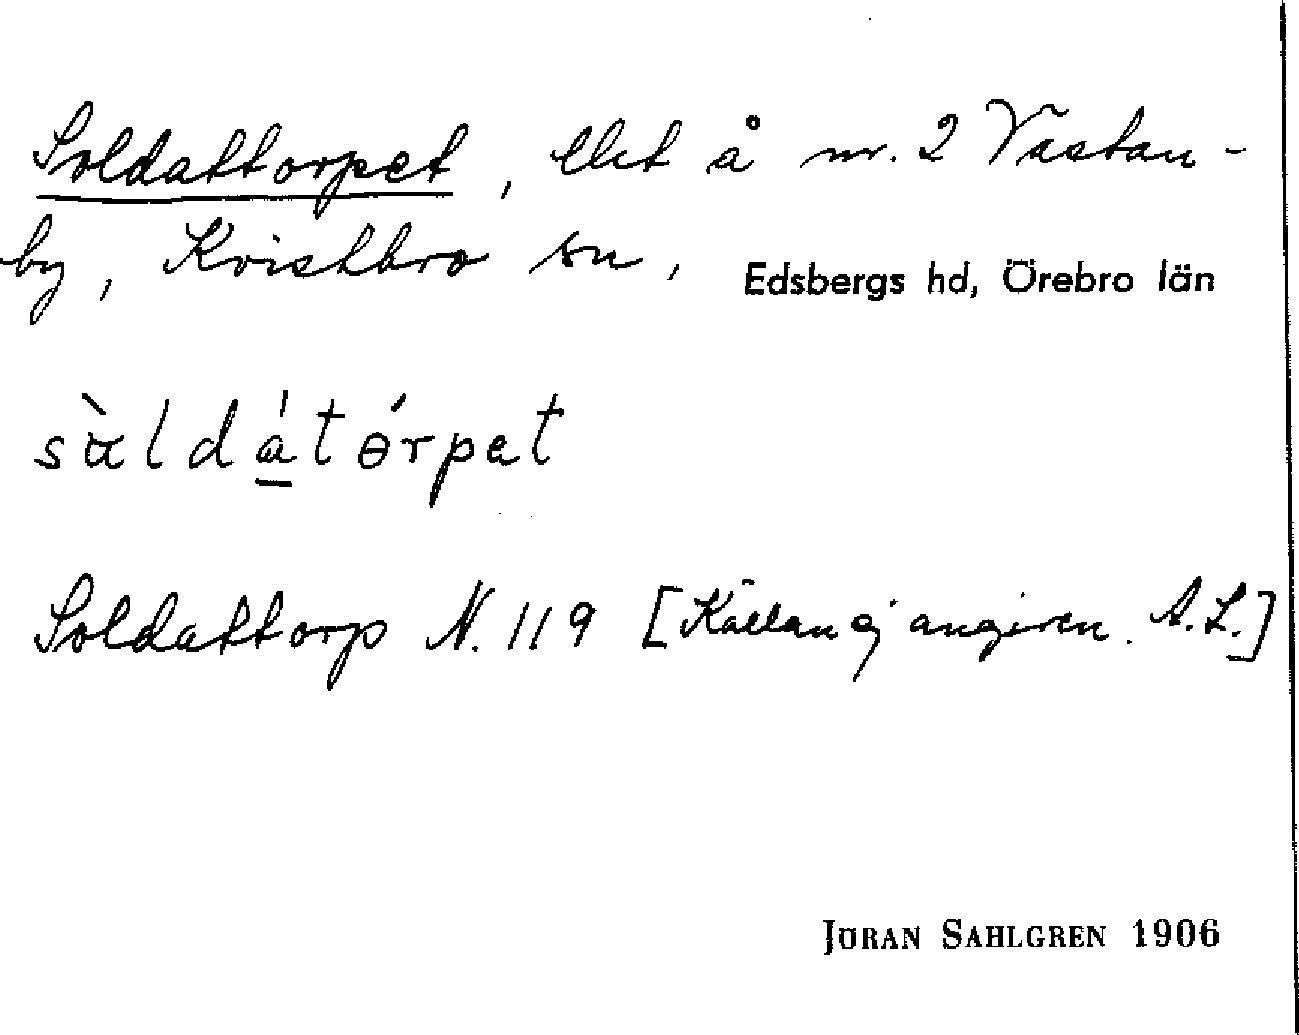 Soldattorpet, lht å nr. 2 Västan-
by, Kvistbro sn, Edsbergs hd, Örebro län
sàldátórpet
Soldattorp N. 119 [Källan ej angiven. A.L.]
JÖRAN SAHLGREN 1906